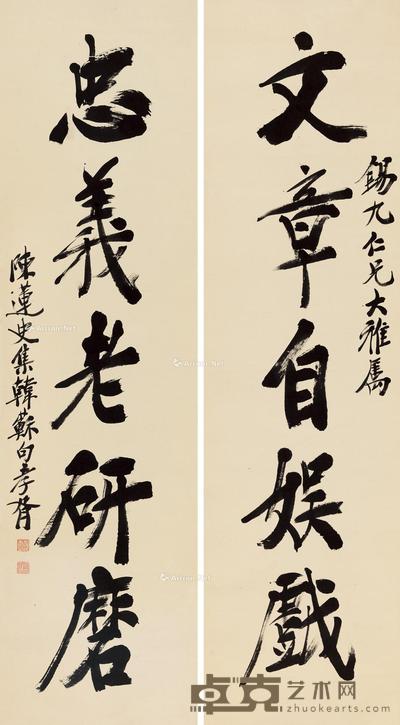 文章自娱戲
錫九仁兄大雅属
忠義老研磨
陳蓮史集韓蘇句孝胥
卓克艺术网
zhuokearts.com